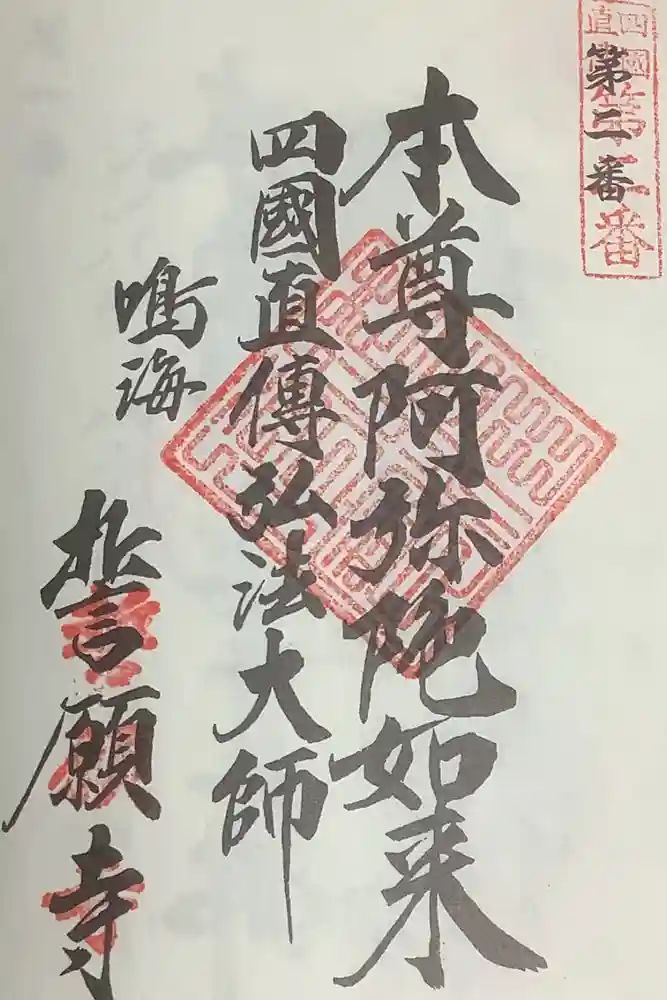 四國直傳
第二番
第二番
本尊阿弥陀如来
四國直傳弘法大師
鳴海
誓願寺